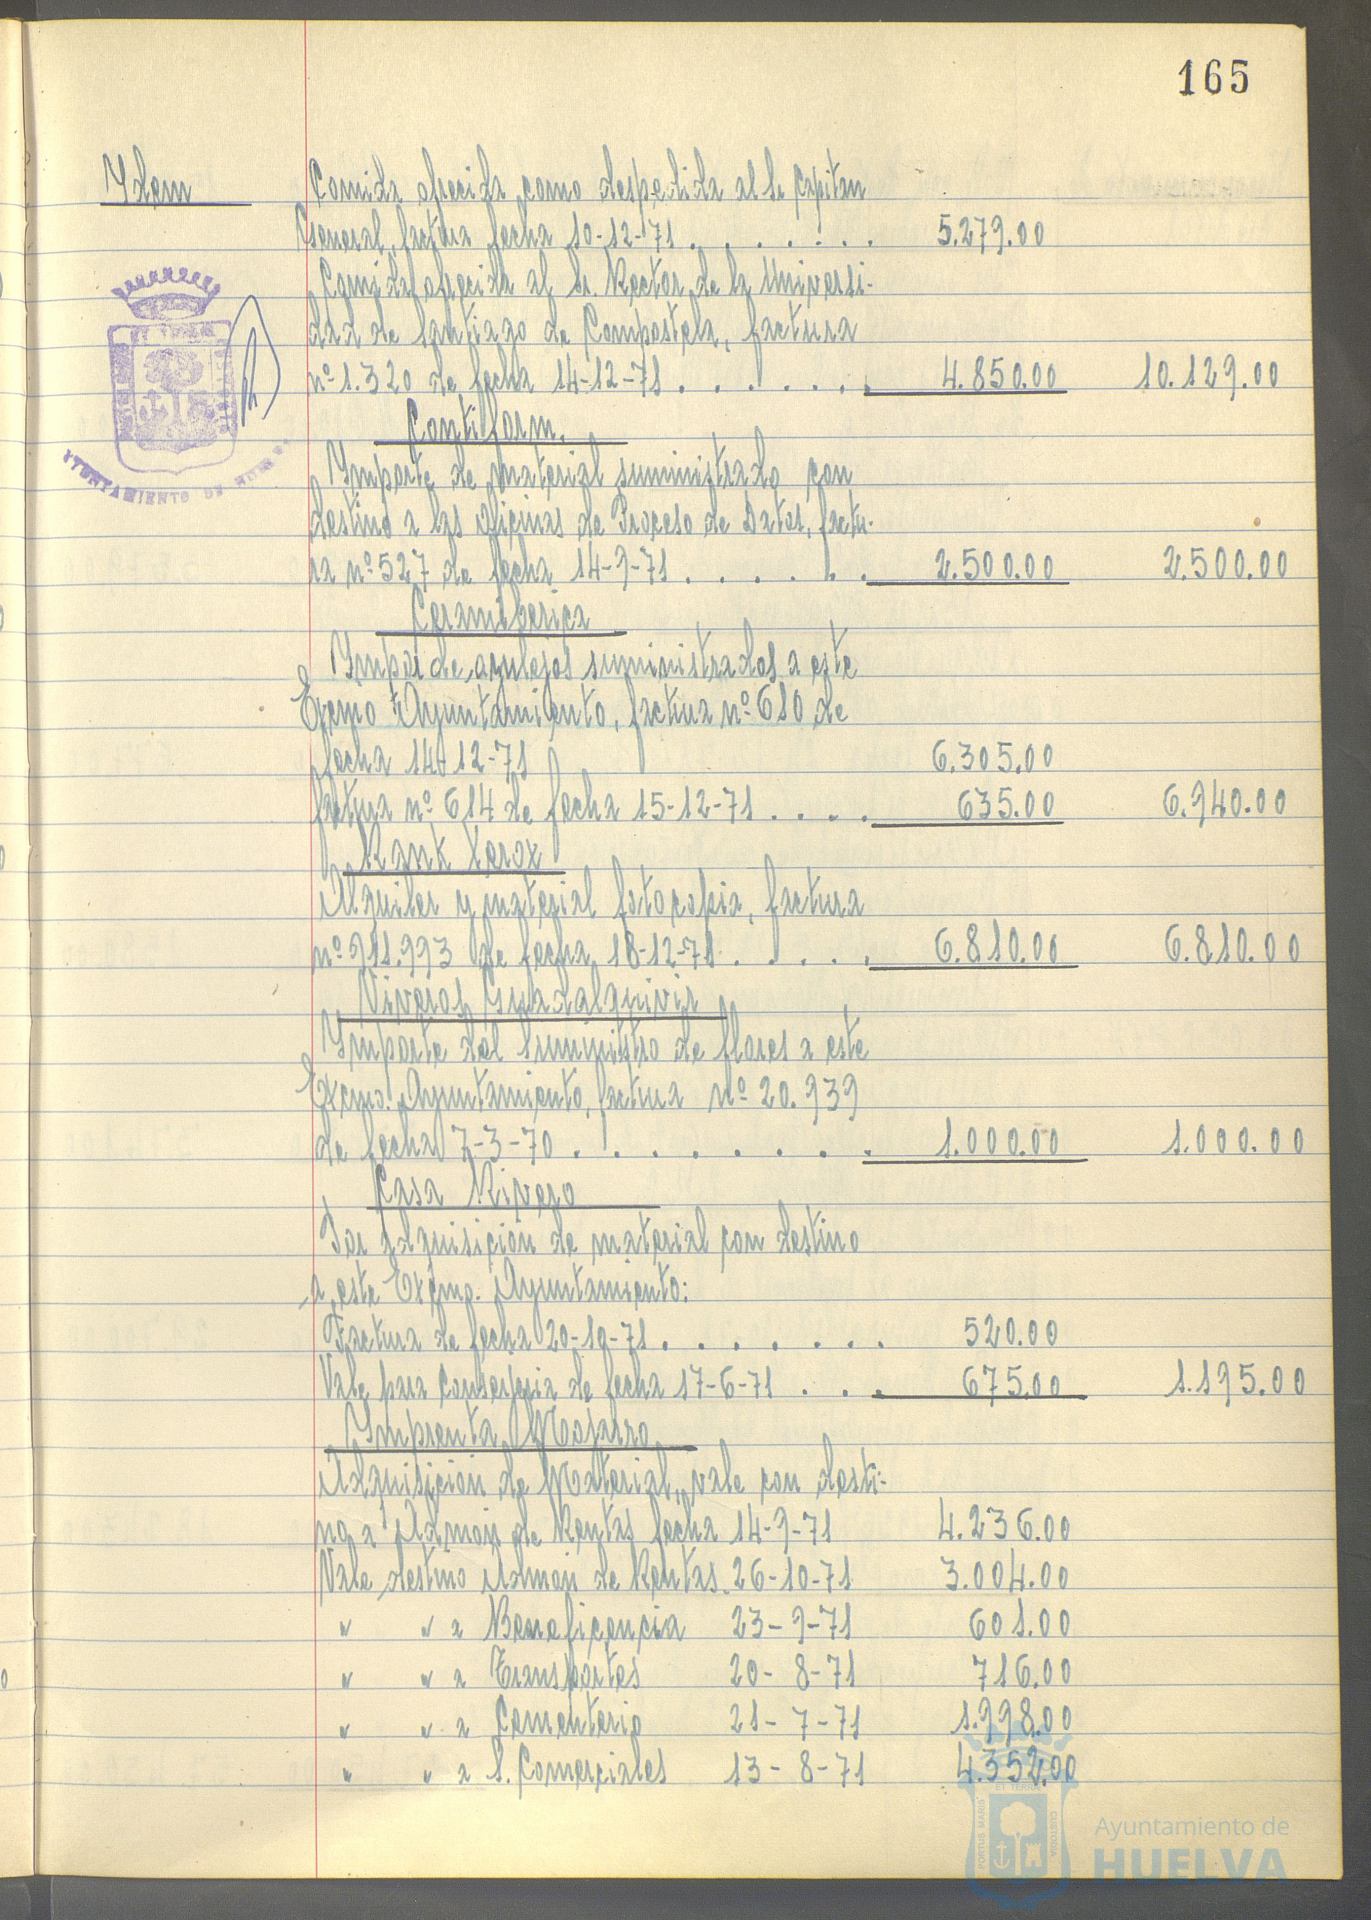 165
Ydem
Comida ofrecida como despedida al Sr Capitan
General, factura fecha 10-12-71 . . . . . . . 5.279.00
Comida ofrecida al Sr. Rector de la Universi-
dad de Santiago de Compostela, factura
nº 1.320 de fecha 14-12-71 . . . . . . . 4.850.00 10.129.00
AYUNTAMIENTO DE HUELVA
Contiform.
Ymporte de material suministrado con
destino a las oficinas de Proceso de Datos, factu-
ra nº 527 de fecha 14-9-71 . . . . . . 2.500.00 2.500.00
Ceramiberica
Ympor de azulejos suministrados a este
Excmo Ayuntamiento, factura nº 610 de
fecha 14-12-71 6.305.00
factura nº 614 de fecha 15-12-71 . . . . 635.00 6.940.00
Rank Xerox
Alquiler y material fotocopia, factura
nº 911.993 de fecha 18-12-71 . . . . . 6.810.00 6.810.00
Viveros Guadalquivir
Ymporte del suministro de flores a este
Excmo. Ayuntamiento, factura nº 20.939
de fecha 7-3-70 . . . . . . . . 1.000.00 1.000.00
Casa Rivero
Por adquisicion de material con destino
a este Excmo. Ayuntamiento:
Factura de fecha 20-10-71 . . . . . . . 520.00
Vale para Conserjeria de fecha 17-6-71 . . . 675.00 1.195.00
Ymprenta Mojarro
Adquisicion de Material, vale con desti-
no a Admon de Rentas fecha 14-9-71 4.236.00
Vale destino Admon de Rentas. 26-10-71 3.004.00
" " a Beneficencia 23-9-71 601.00
" " a Transportes 20-8-71 716.00
" " a Cementerio 21-7-71 1.998.00
" " a S. Comerciales 13-8-71 4.352.00
Ayuntamiento de
HUELVA